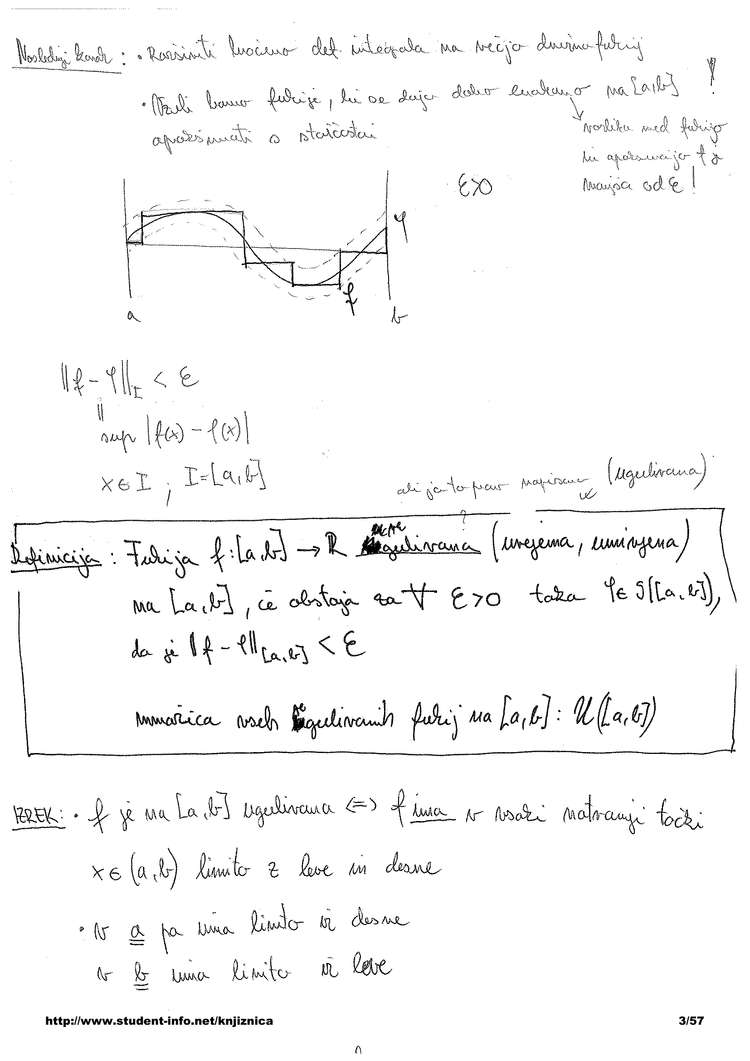 Naslednji korak : • Razširiti ločeno def. integrala na večjo družino funkcij
• Vzeli bomo funkcije, ki se dajo dobro enakomerno na [a,b] !
aproksimirati s stopničastimi
razlika med funkcijo
in aproksimacijo f je
manjša od ε !
ε>0
φ
f
a b
‖f - φ‖_I < ε
||
sup |f(x) - φ(x)|
x ∈ I ; I=[a,b]
ali je to prav napisano (regulirana)
?
Definicija : Funkcija f:[a,b] → ℝ regulirana (urejena, umirjena)
na [a,b], če obstaja za ∀ ε>0 taka φ ∈ S([a,b]),
da je ‖f - φ‖_[a,b] < ε
množica vseh reguliranih funkcij na [a,b] : U([a,b])
IZREK: • f je na [a,b] regulirana <=> f ima v vsaki notranji točki
x ∈ (a,b) limito z leve in desne
• v a pa ima limito iz desne
v b ima limito iz leve
http://www.student-info.net/knjiznica 3/57